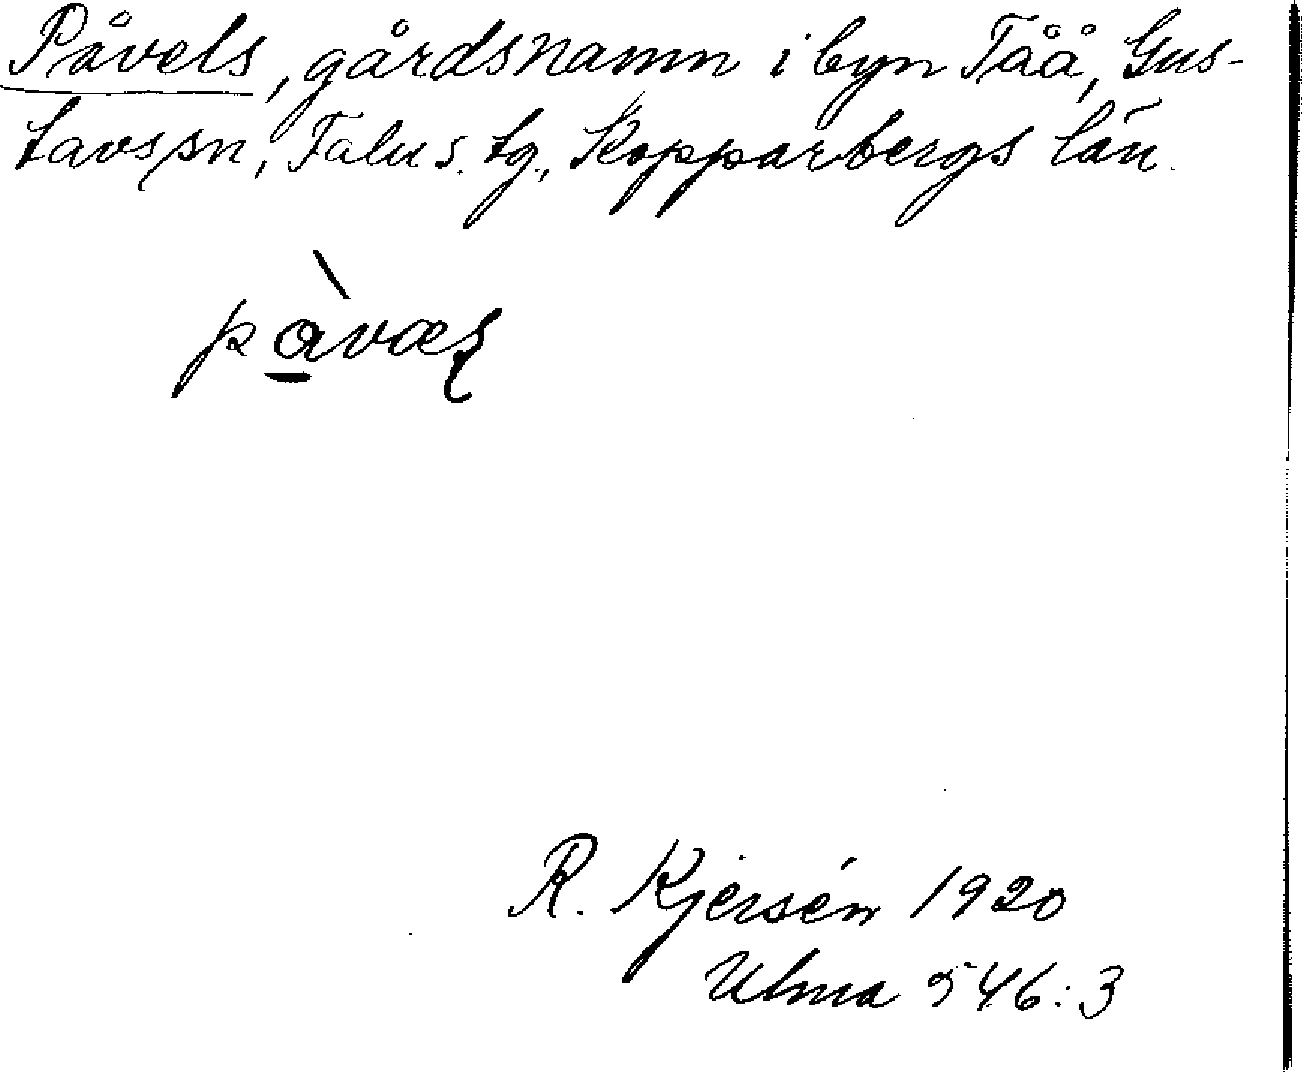 Påvels, gårdsnamn i byn Tåå, Gus-
tavs sn, Falu s. tg., Kopparbergs län.
pàvæʂ
R. Kjersén 1920
Ulma 546:3